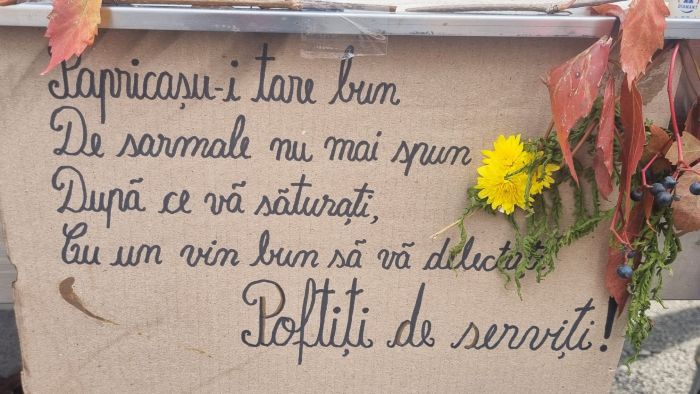 Papricașu-i tare bun
De sarmale nu mai spun
După ce vă săturați,
Cu un vin bun să vă delectați
Poftiți de serviți!